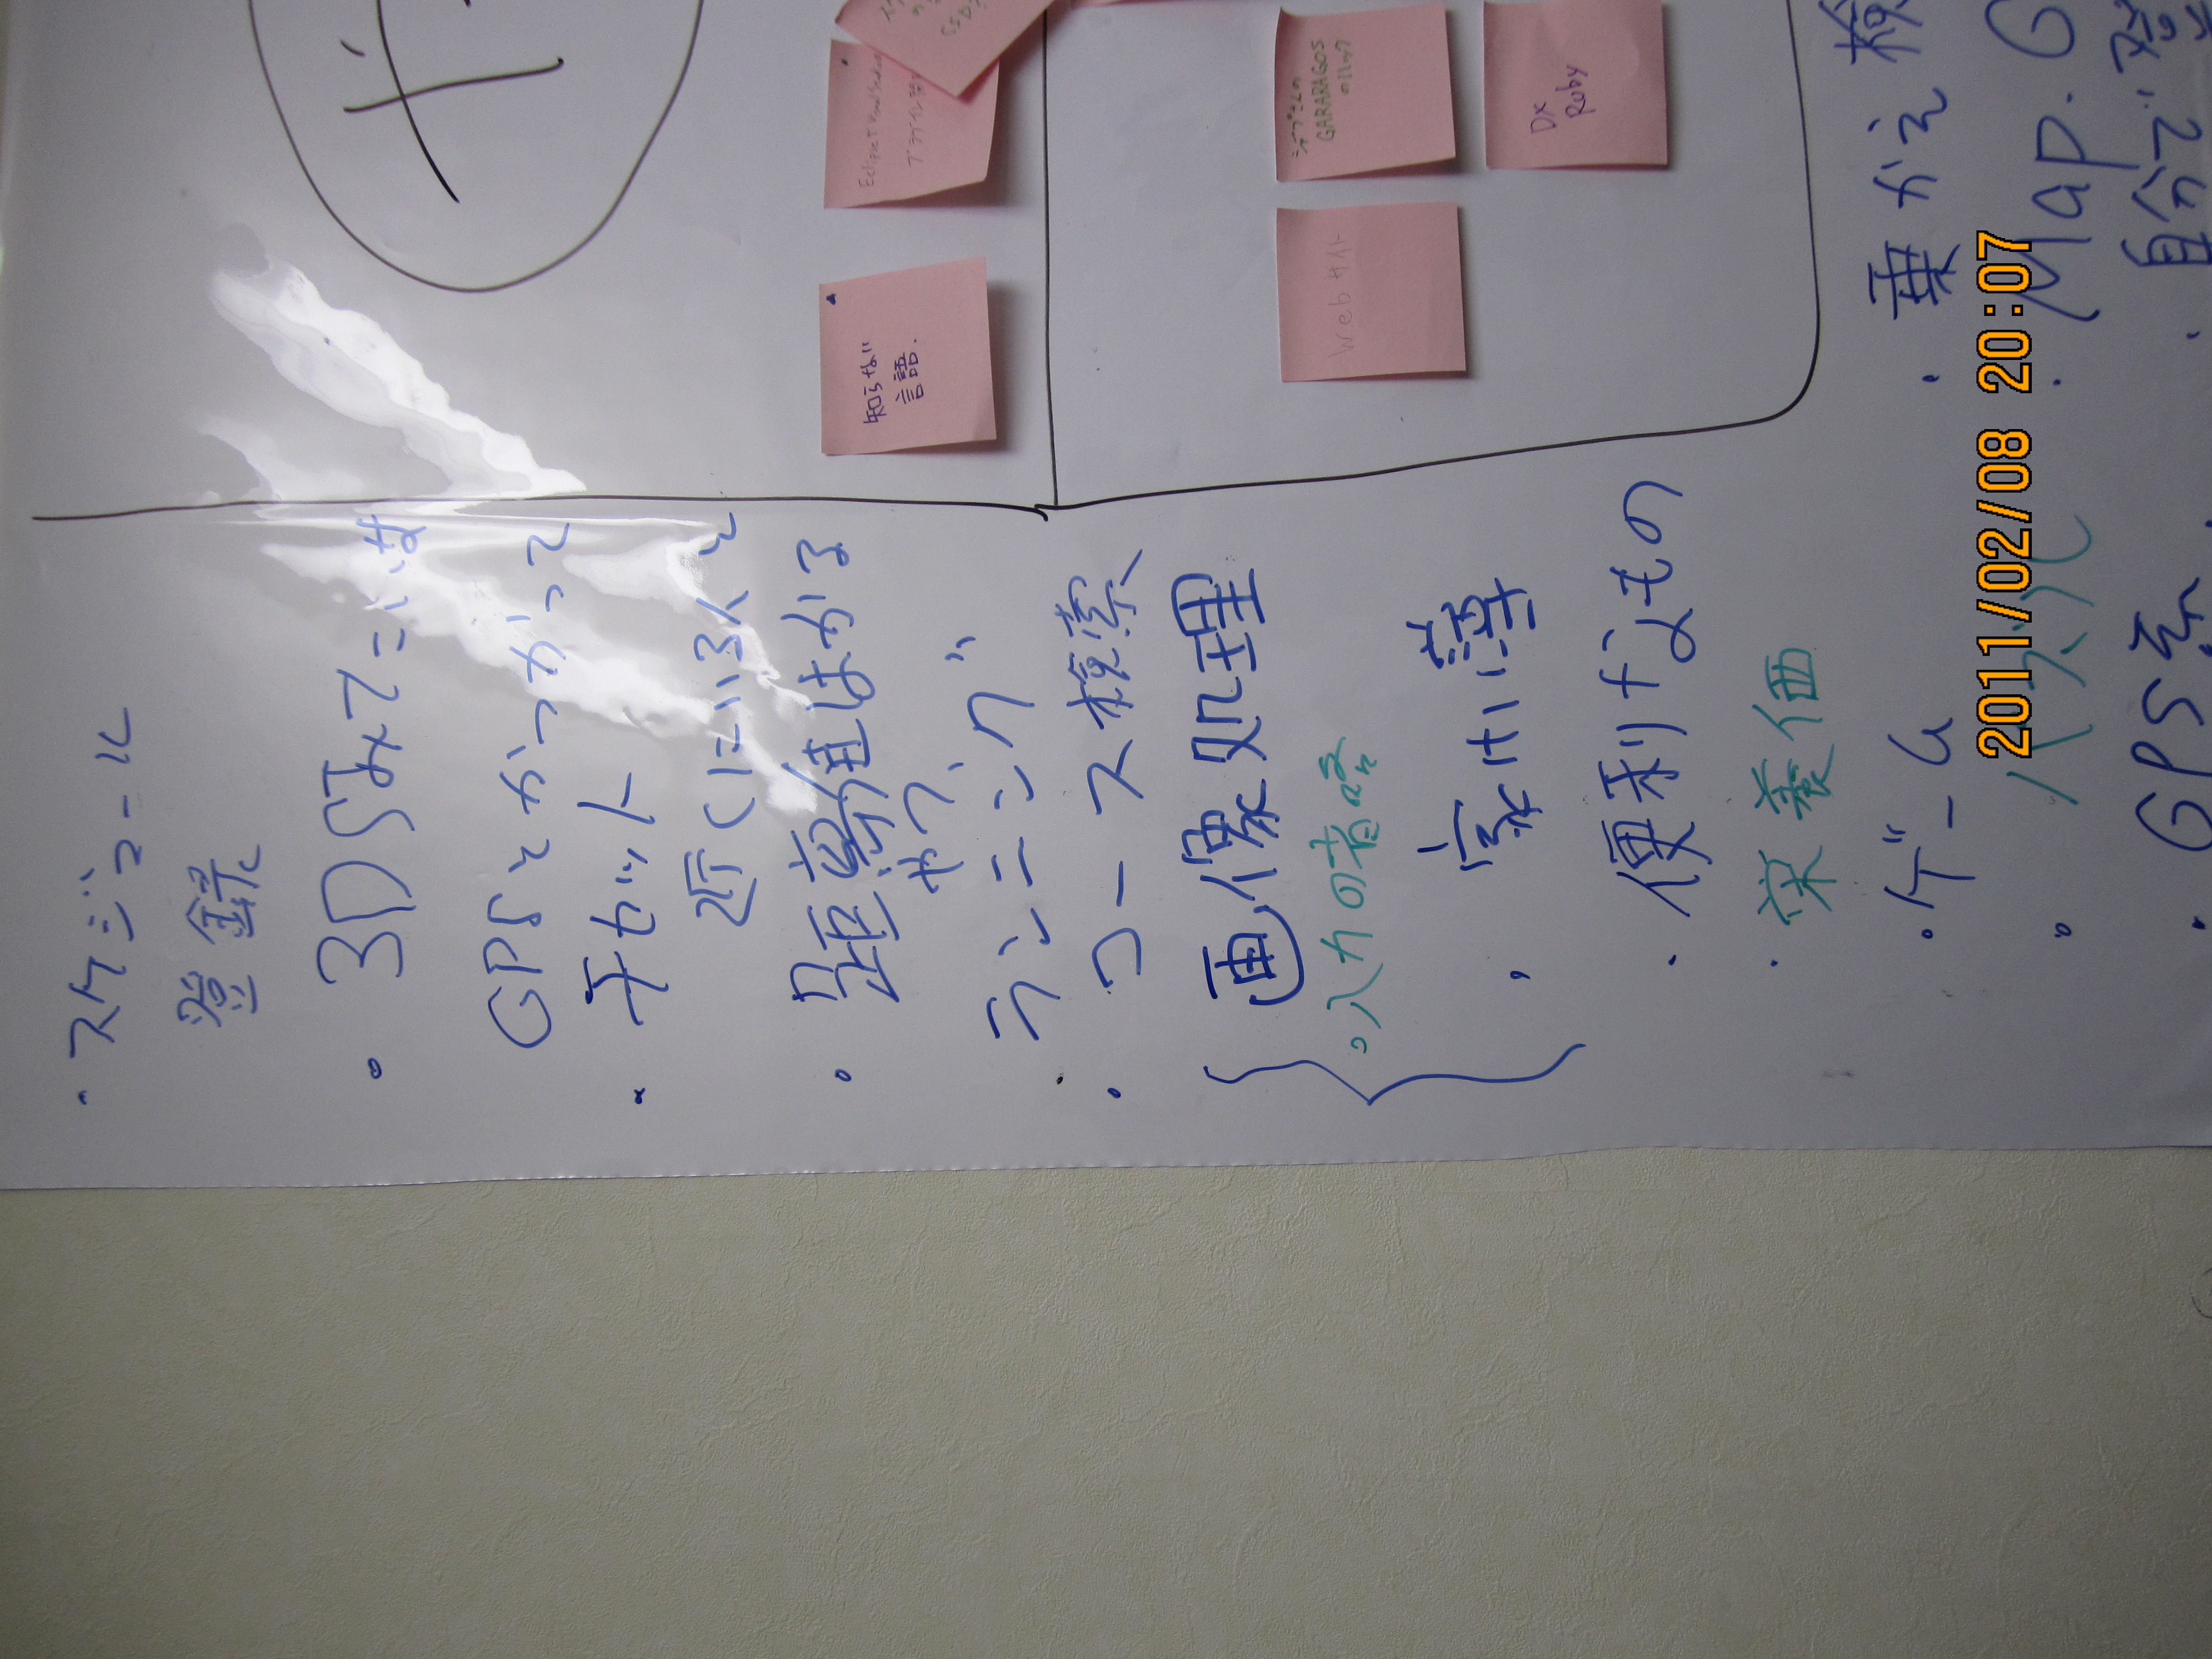 ・スケジュール
登録
・3DSみてこいな
GPSとかつかって
・チャット
近くにいる人と
・距離値はかる
やつ、
・ランニング
・コース検索
画像処理
・入力の省略
・家計簿
・便利なもの
・栄養価
・ゲーム
・パズル
・GPS系
・乗かえ検
・Map.G
・自分で登
や
知らない
言語.
Eclipse
プラグイン開
Webサイト
GARARAGOS
のハック
Dx
Ruby
2011/02/08 20:07